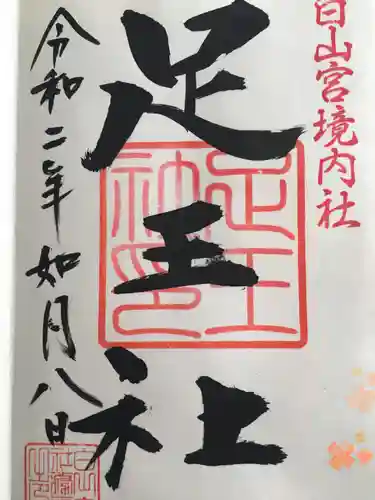 白山宮境内社
足王社
足王神印
令和二年如月八日